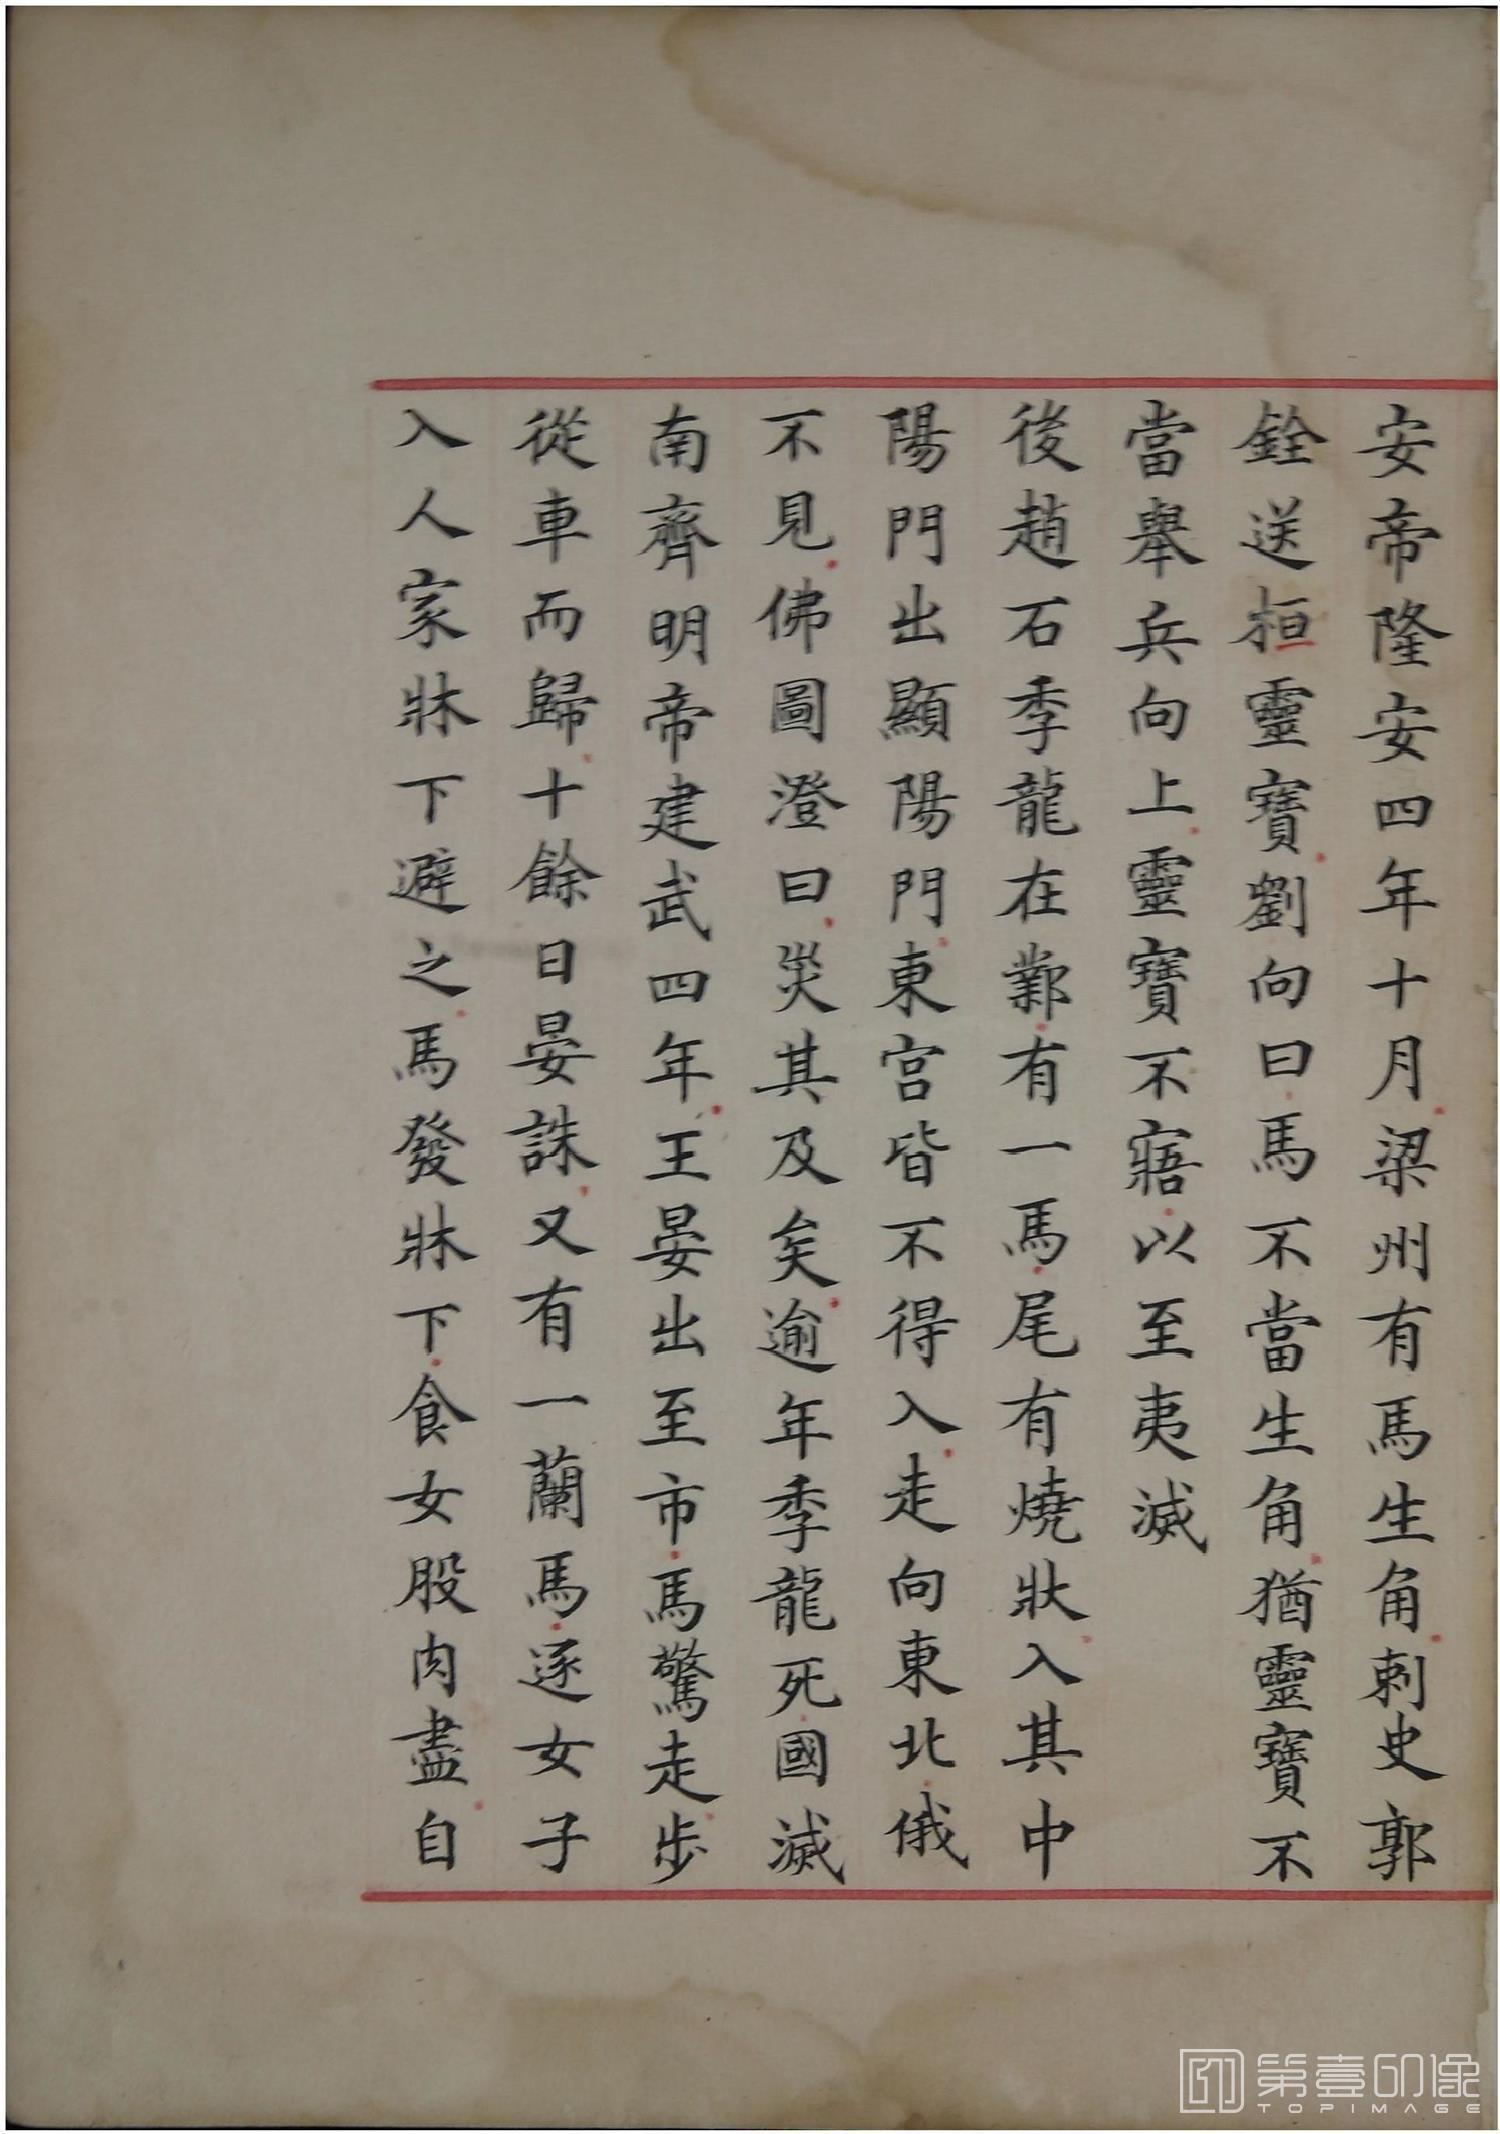 安帝隆安四年十月梁州有馬生角刺史郭
銓送桓靈寶劉向曰馬不當生角猶靈寶不
當舉兵向上靈寶不寤以至夷滅
後趙石季龍在鄴有一馬尾有燒狀入其中
陽門出顯陽門東宮皆不得入走向東北俄
不見佛圖澄曰災其及矣逾年季龍死國滅
南齊明帝建武四年王晏出至市馬驚走步
從車而歸十餘日晏誅又有一蘭馬逐女子
入人家牀下避之馬發牀下食女股肉盡自
第壹印像
TOPIMAGE